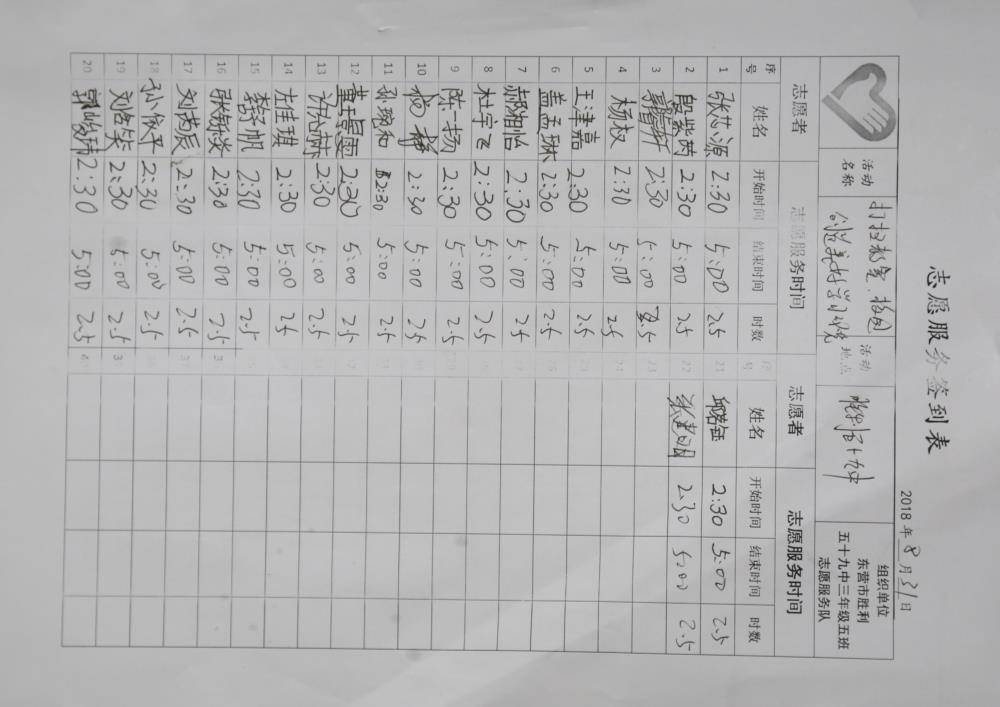 志愿服务签到表
2018年8月31日
活动名称
打扫教室、校园
创造美好学习环境
活动地点
胜利五十九中
组织单位
东营市胜利
五十九中三年级五班
志愿服务队
志愿者 志愿服务时间 志愿者 志愿服务时间
序号 姓名 开始时间 结束时间 时数 序号 姓名 开始时间 结束时间 时数
1 张芯源 2:30 5:00 2.5 21 邱若钰 2:30 5:00 2.5
2 殷紫茵 2:30 5:00 2.5 22 2:30 5:00 2.5
3 2:30 5:00 2.5 23
4 杨权 2:30 5:00 2.5 24
5 王津嘉 2:30 5:00 2.5
6 盖孟琳 2:30 5:00 2.5
7 郝湘怡 2:30 5:00 2.5
8 杜宇飞 2:30 5:00 2.5
9 陈一扬 2:30 5:00 2.5
10 2:30 5:00 2.5
11 孙琬和 2:30 5:00 2.5
12 2:30 5:00 2.5
13 2:30 5:00 2.5
14 左佳琪 2:30 5:00 2.5
15 李好帆 2:30 5:00 2.5
16 2:30 5:00 2.5
17 刘芮辰 2:30 5:00 2.5
18 孙小依 2:30 5:00 2.5
19 刘浩笑 2:30 5:00 2.5
20 2:30 5:00 2.5